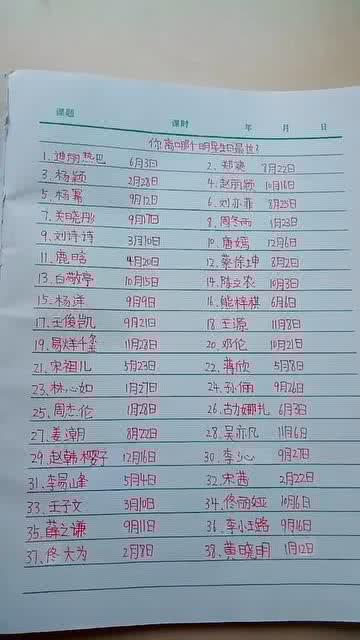 课题
课时 年 月 日
你离哪个明星生日最近?
1、迪丽热巴 6月3日 2、郑爽 8月22日
3、杨颖 2月28日 4、赵丽颖 10月16日
5、杨幂 9月12日 6、刘亦菲 8月25日
7、关晓彤 9月17日 8、周冬雨 1月23日
9、刘诗诗 3月10日 10、唐嫣 12月6日
11、鹿晗 4月20日 12、蔡徐坤 8月2日
13、白敬亭 10月15日 14、陈立农 10月3日
15、杨洋 9月9日 16、熊梓淇 6月6日
17、王俊凯 9月21日 18、王源 11月8日
19、易烊千玺 11月28日 20、邓伦 10月21日
21、宋祖儿 5月23日 22、蒋欣 5月8日
23、林心如 1月27日 24、孙俪 9月26日
25、周杰伦 1月28日 26、古力娜扎 6月3日
27、姜潮 8月22日 28、吴亦凡 11月6日
29、赵韩樱子 12月16日 30、李沁 9月27日
31、李易峰 5月4日 32、宋茜 2月22日
33、王子文 3月10日 34、佟丽娅 10月6日
35、薛之谦 9月11日 36、李小璐 9月16日
37、佟大为 2月8日 38、黄晓明 1月12日